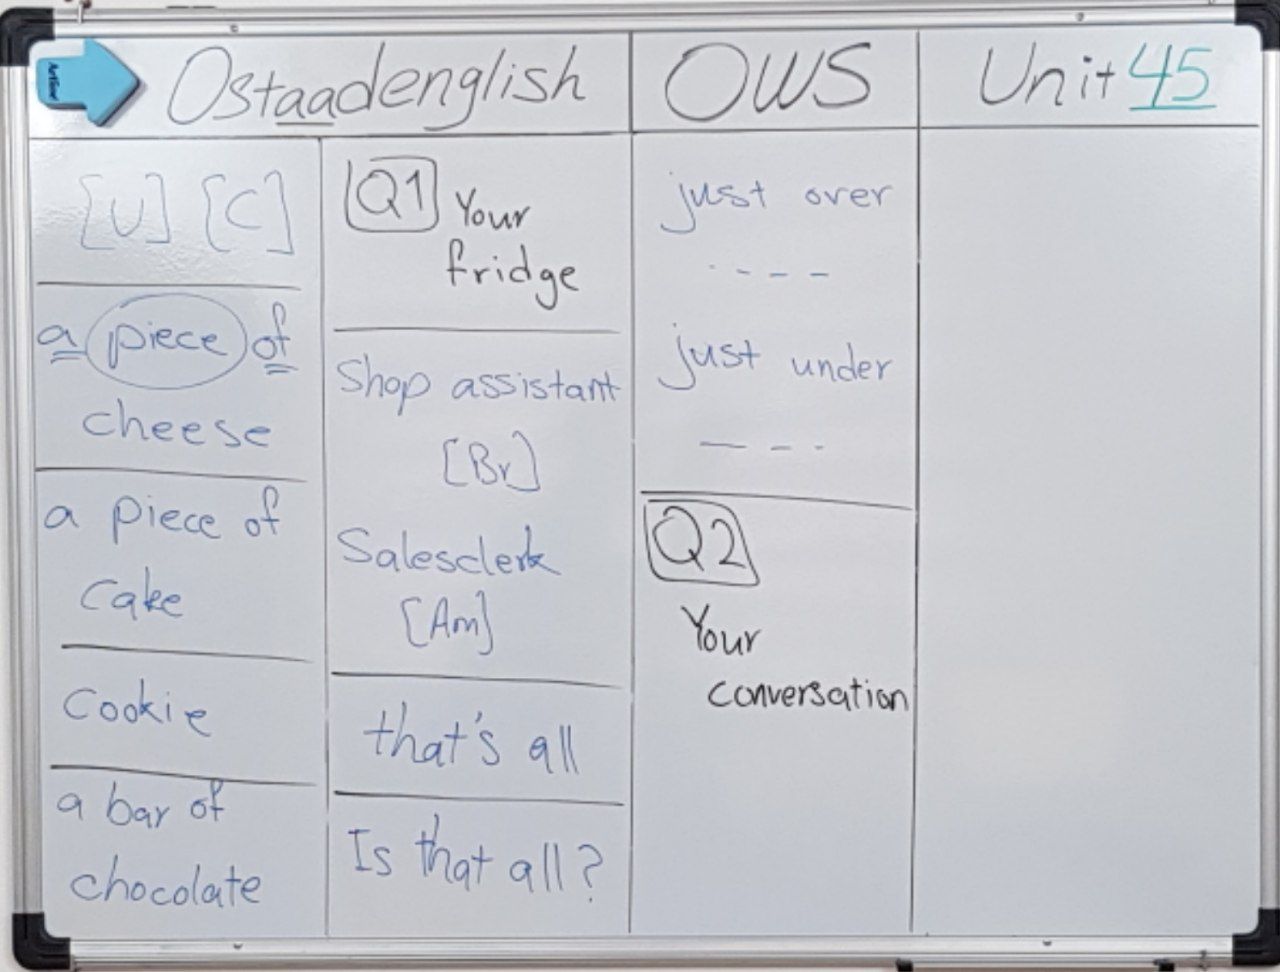 Ostaadenglish
OWS
Unit 45
[U] [C]
a piece of
cheese
a piece of
cake
cookie
a bar of
chocolate
Q1 Your
fridge
Shop assistant
[Br]
Salesclerk
[Am]
that's all
Is that all?
just over
- - - -
just under
- - -
Q2
Your
conversation